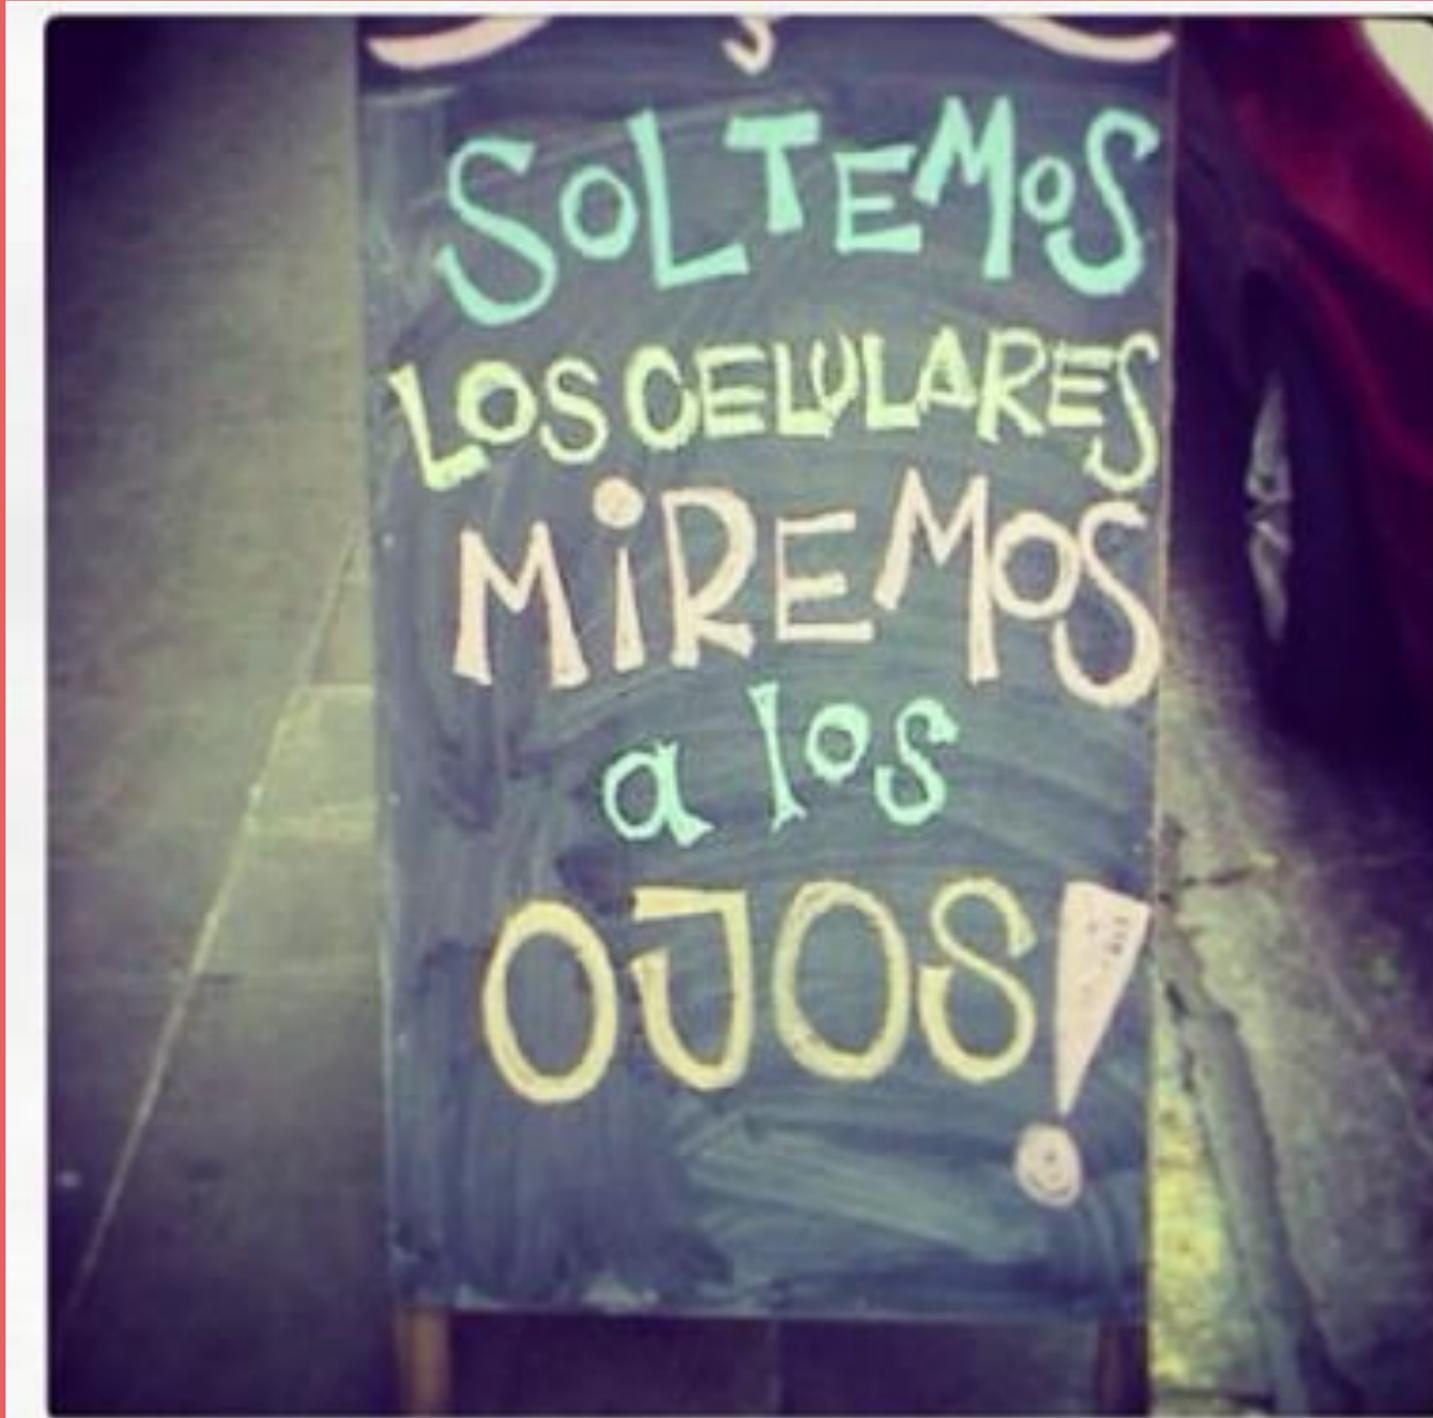 SOLTEMOS
LOS CELULARES
MiREMOS
a los
OJOS!